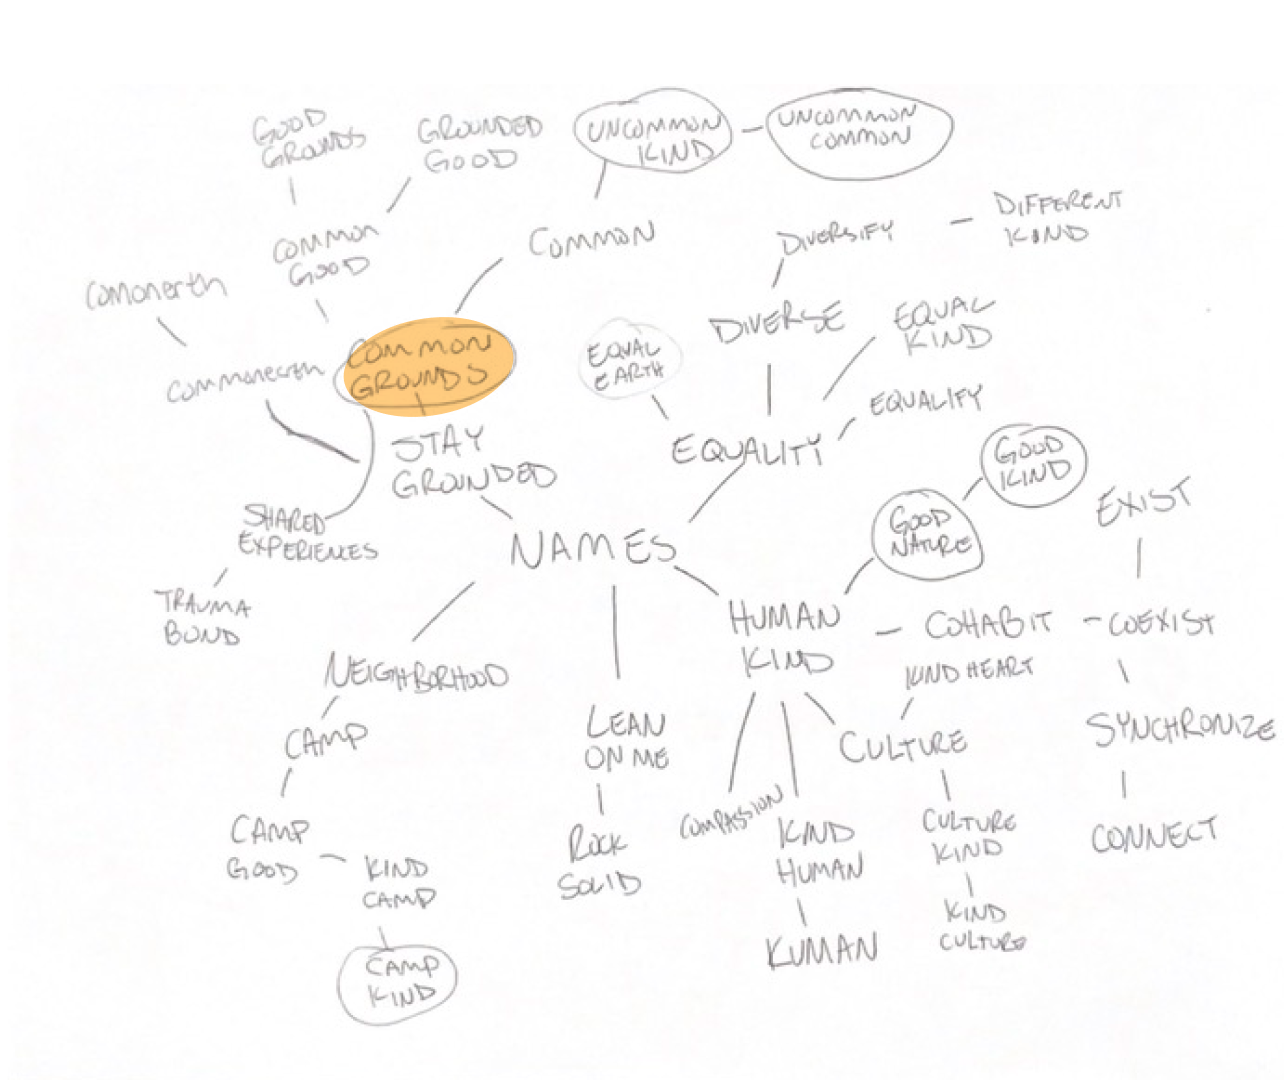 GOOD
GROUNDS
GROUNDED
GOOD
UNCOMMON
KIND
UNCOMMON
COMMON
COMMON
GOOD
COMMON
DIVERSIFY
DIFFERENT
KIND
Comonerth
Commonerth
COMMON
GROUNDS
EQUAL
EARTH
DIVERSE
EQUAL
KIND
EQUALIFY
STAY
GROUNDED
EQUALITY
GOOD
KIND
SHARED
EXPERIENCES
NAMES
GOOD
NATURE
EXIST
TRAUMA
BOND
HUMAN
KIND
COHABIT
COEXIST
NEIGHBORHOOD
KIND HEART
CAMP
LEAN
ON ME
CULTURE
SYNCHRONIZE
CAMP
GOOD
KIND
CAMP
ROCK
SOLID
COMPASSION
KIND
HUMAN
CULTURE
KIND
CONNECT
CAMP
KIND
KUMAN
KIND
CULTURE